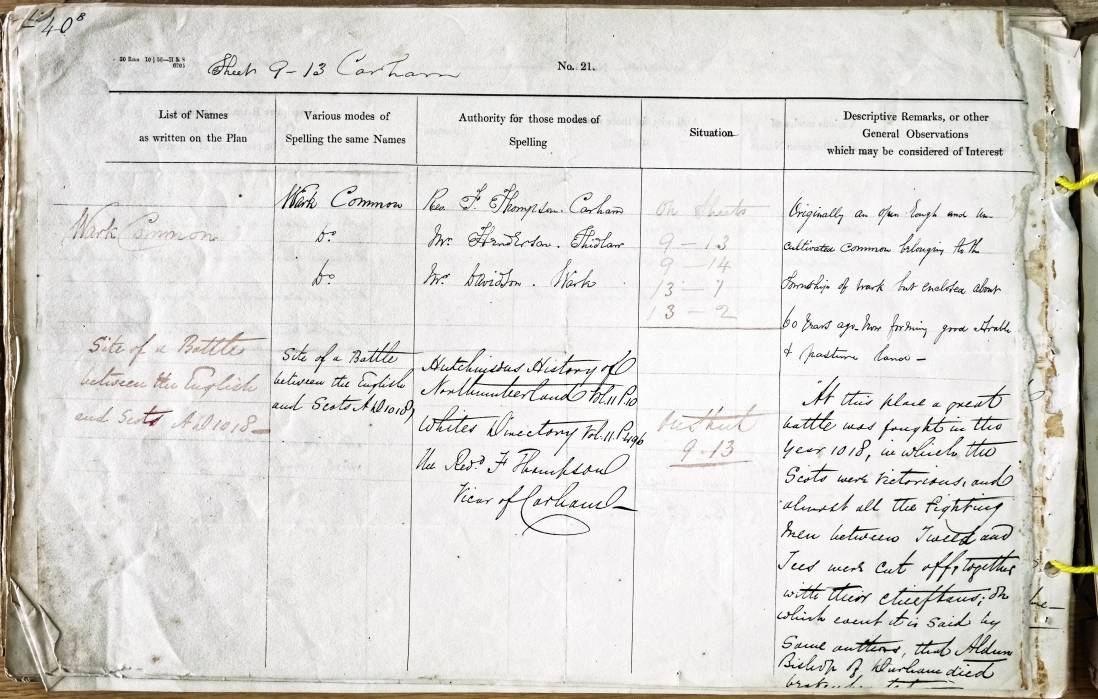 40⁸
Sheet 9-13 Carham
No. 21.
List of Names
as written on the Plan
Various modes of
Spelling the same Names
Authority for those modes of
Spelling
Situation
Descriptive Remarks, or other
General Observations
which may be considered of Interest
Wark Common
Wark Common
Do
Do
Rev. F. Thompson. Carham
Mr. Henderson. Shidlaw
Mr. Davidson. Wark
On Sheets
9-13
9-14
13-1
13-2
Originally an open rough and un-
cultivated common belonging to the
Township of Wark but enclosed about
60 Years ago. Now forming good Arable
& pasture land -
Site of a Battle
between the English
and Scots A.D 1018 -
Site of a Battle
between the English
and Scots A.D 1018,
Hutchinsons History of
Northumberland Vol. 11 P.10
Whites Directory Vol. 11. P.496
The Revd. F Thompson
Vicar of Carham -
On Sheet
9.13
"At this place a great
battle was fought in the
Year 1018, in which the
Scots were Victorious, and
almost all the fighting
Men between Tweed and
Tees were cut off, together
with their chieftans; on
which event it is said by
Some authors, that Aldun
Bishop of Durham died